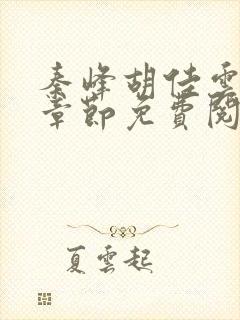 秦峰胡佳雲
章節免費閱
夏雲起